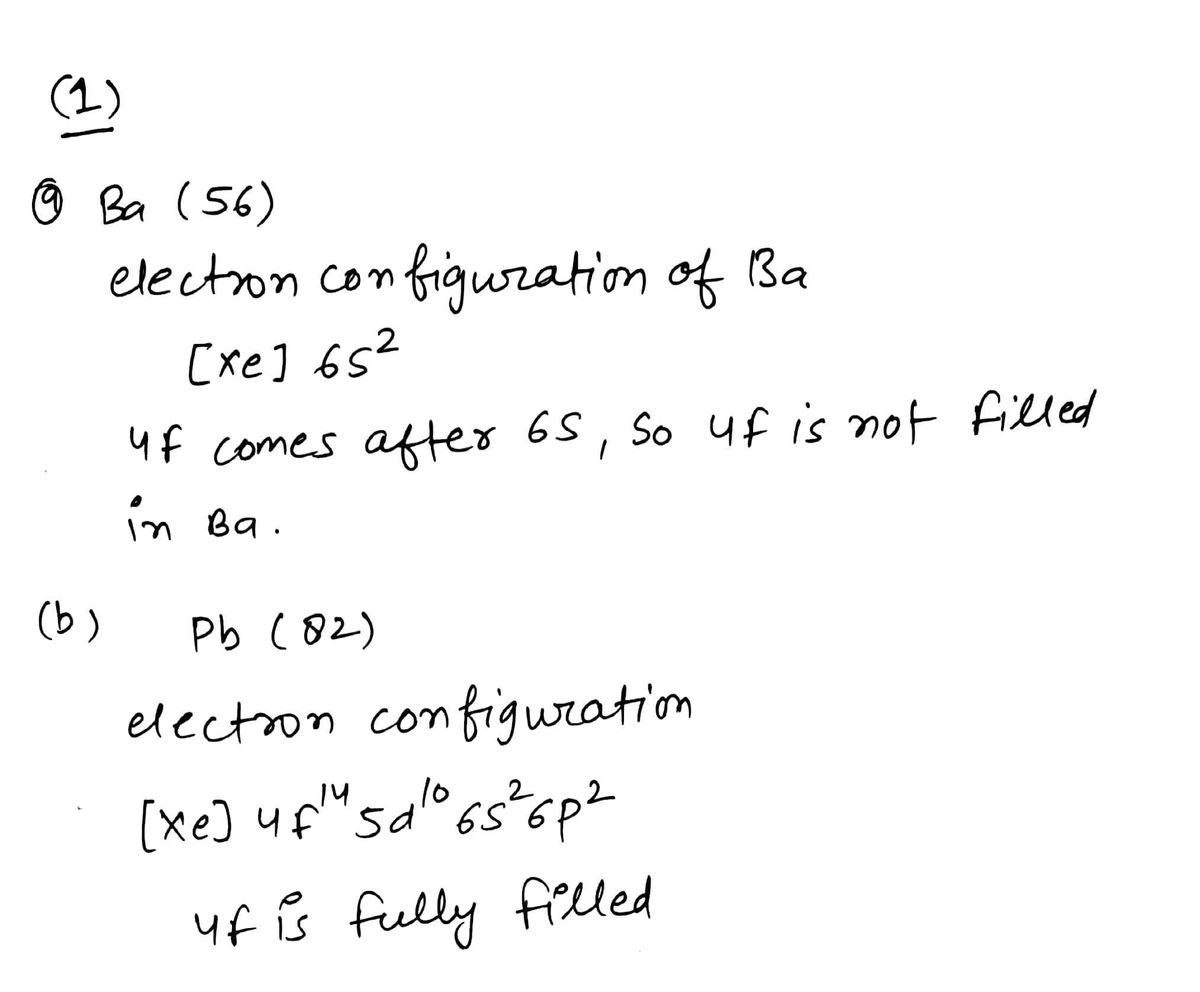 (1)
(a) Ba (56)
electron configuration of Ba
[xe] 6s²
4f comes after 6s, so 4f is not filled
in Ba.
(b) Pb (82)
electron configuration
[xe] 4f¹⁴ 5d¹⁰ 6s² 6p²
4f is fully filled